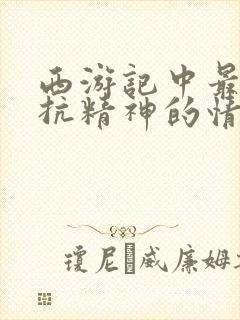 西游記中最
抗精神的情
瓊尼 威廉姆